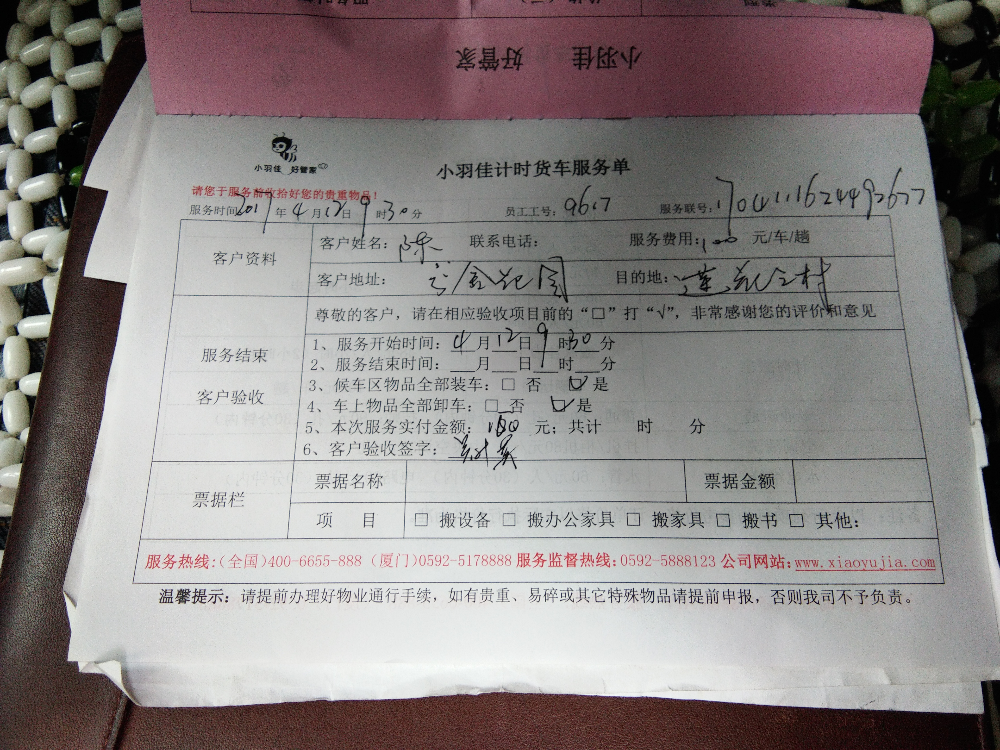 小羽佳 好管家
小羽佳 好管家
小羽佳计时货车服务单
请您于服务前收拾好您的贵重物品！
服务时间2017年4月12日9时30分 员工工号：9617 服务联号：
客户资料
客户姓名：陈 联系电话： 服务费用：100 元/车/趟
客户地址： 目的地：莲花三村
尊敬的客户，请在相应验收项目前的“□”打“√”，非常感谢您的评价和意见
服务结束
客户验收
1、服务开始时间：4月12日9时30分
2、服务结束时间：___月___日___时___分
3、候车区物品全部装车：□ 否 □是
4、车上物品全部卸车：□ 否 □是
5、本次服务实付金额：100 元；共计 时 分
6、客户验收签字：
票据栏
票据名称 票据金额
项 目 □ 搬设备 □ 搬办公家具 □ 搬家具 □ 搬书 □ 其他：
服务热线：（全国）400-6655-888（厦门）0592-5178888 服务监督热线：0592-5888123 公司网站：www.xiaoyujia.com
温馨提示：请提前办理好物业通行手续，如有贵重、易碎或其它特殊物品请提前申报，否则我司不予负责。